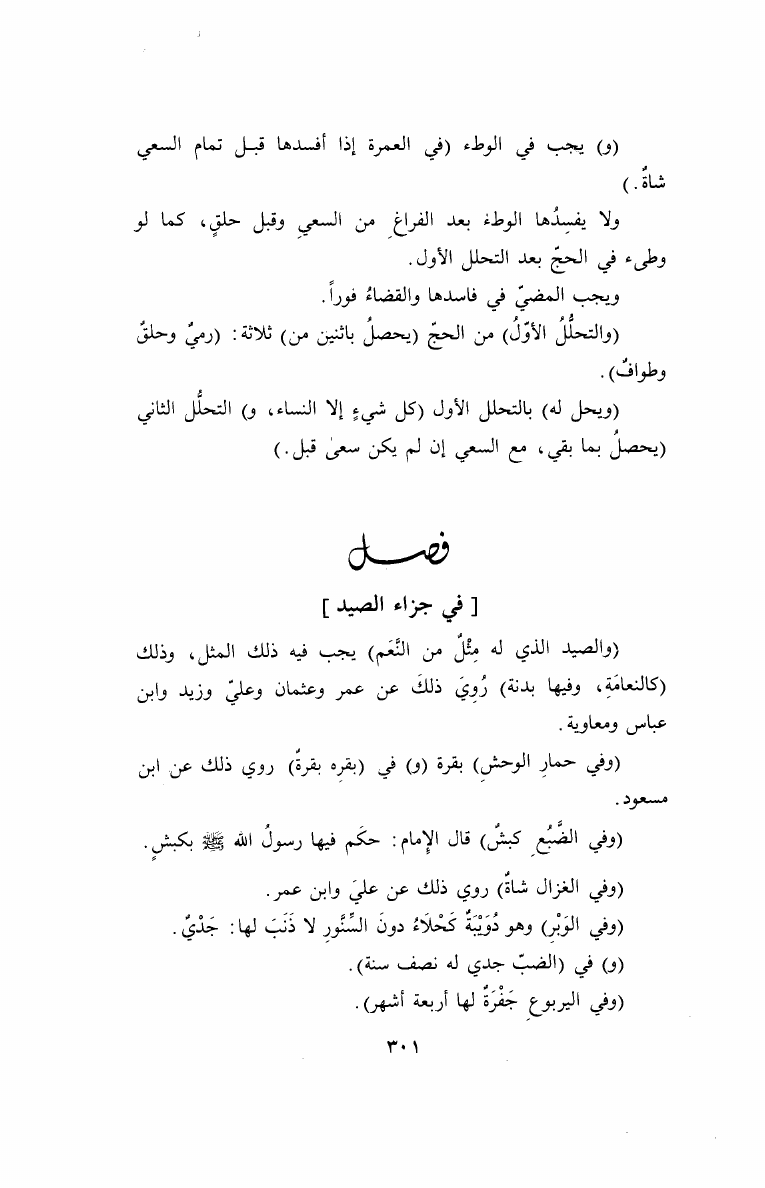 (و) يجب في الوطء (في العمرة إذا أفسدها قبل تمام السعي
شاةٌ.)
ولا يفسِدُها الوطء بعد الفراغِ من السعيِ وقبل حلقٍ، كما لو
وطىء في الحجّ بعد التحلل الأول.
ويجب المضيّ في فاسدها والقضاءُ فوراً.
(والتحلُّلُ الأوّلُ) من الحجّ (يحصلُ باثنين من) ثلاثة: (رميٌ وحلقٌ
وطوافٌ).
(ويحل له) بالتحلل الأول (كل شيءٍ إلا النساء، و) التحلُّل الثاني
(يحصلُ بما بقي، مع السعي إن لم يكن سعىٰ قبل.)
فصل
[ في جزاء الصيد ]
(والصيد الذي له مِثْلٌ من النَّعَم) يجب فيه ذلك المثل، وذلك
(كالنعامَةِ، وفيها بدنة) رُوِيَ ذلكَ عن عمر وعثمان وعليّ وزيد وابن
عباس ومعاوية.
(وفي حمارِ الوحشِ) بقرة (و) في (بقرِه بقرةٌ) روي ذلك عن ابن
مسعود.
(وفي الضَّبُعِ كبشٌ) قال الإمام: حكَم فيها رسولُ الله ﷺ بكبشٍ.
(وفي الغزال شاةٌ) روي ذلك عن عليَ وابن عمر.
(وفي الوَبْرِ) وهو دُوَيْبَةٌ كَحْلَاءُ دونَ السِّنَّورِ لا ذَنَبَ لها: جَدْيٌ.
(و) في (الضبّ جدي له نصف سنة).
(وفي اليربوعِ جَفْرَةٌ لها أربعة أشهر).
٣٠١